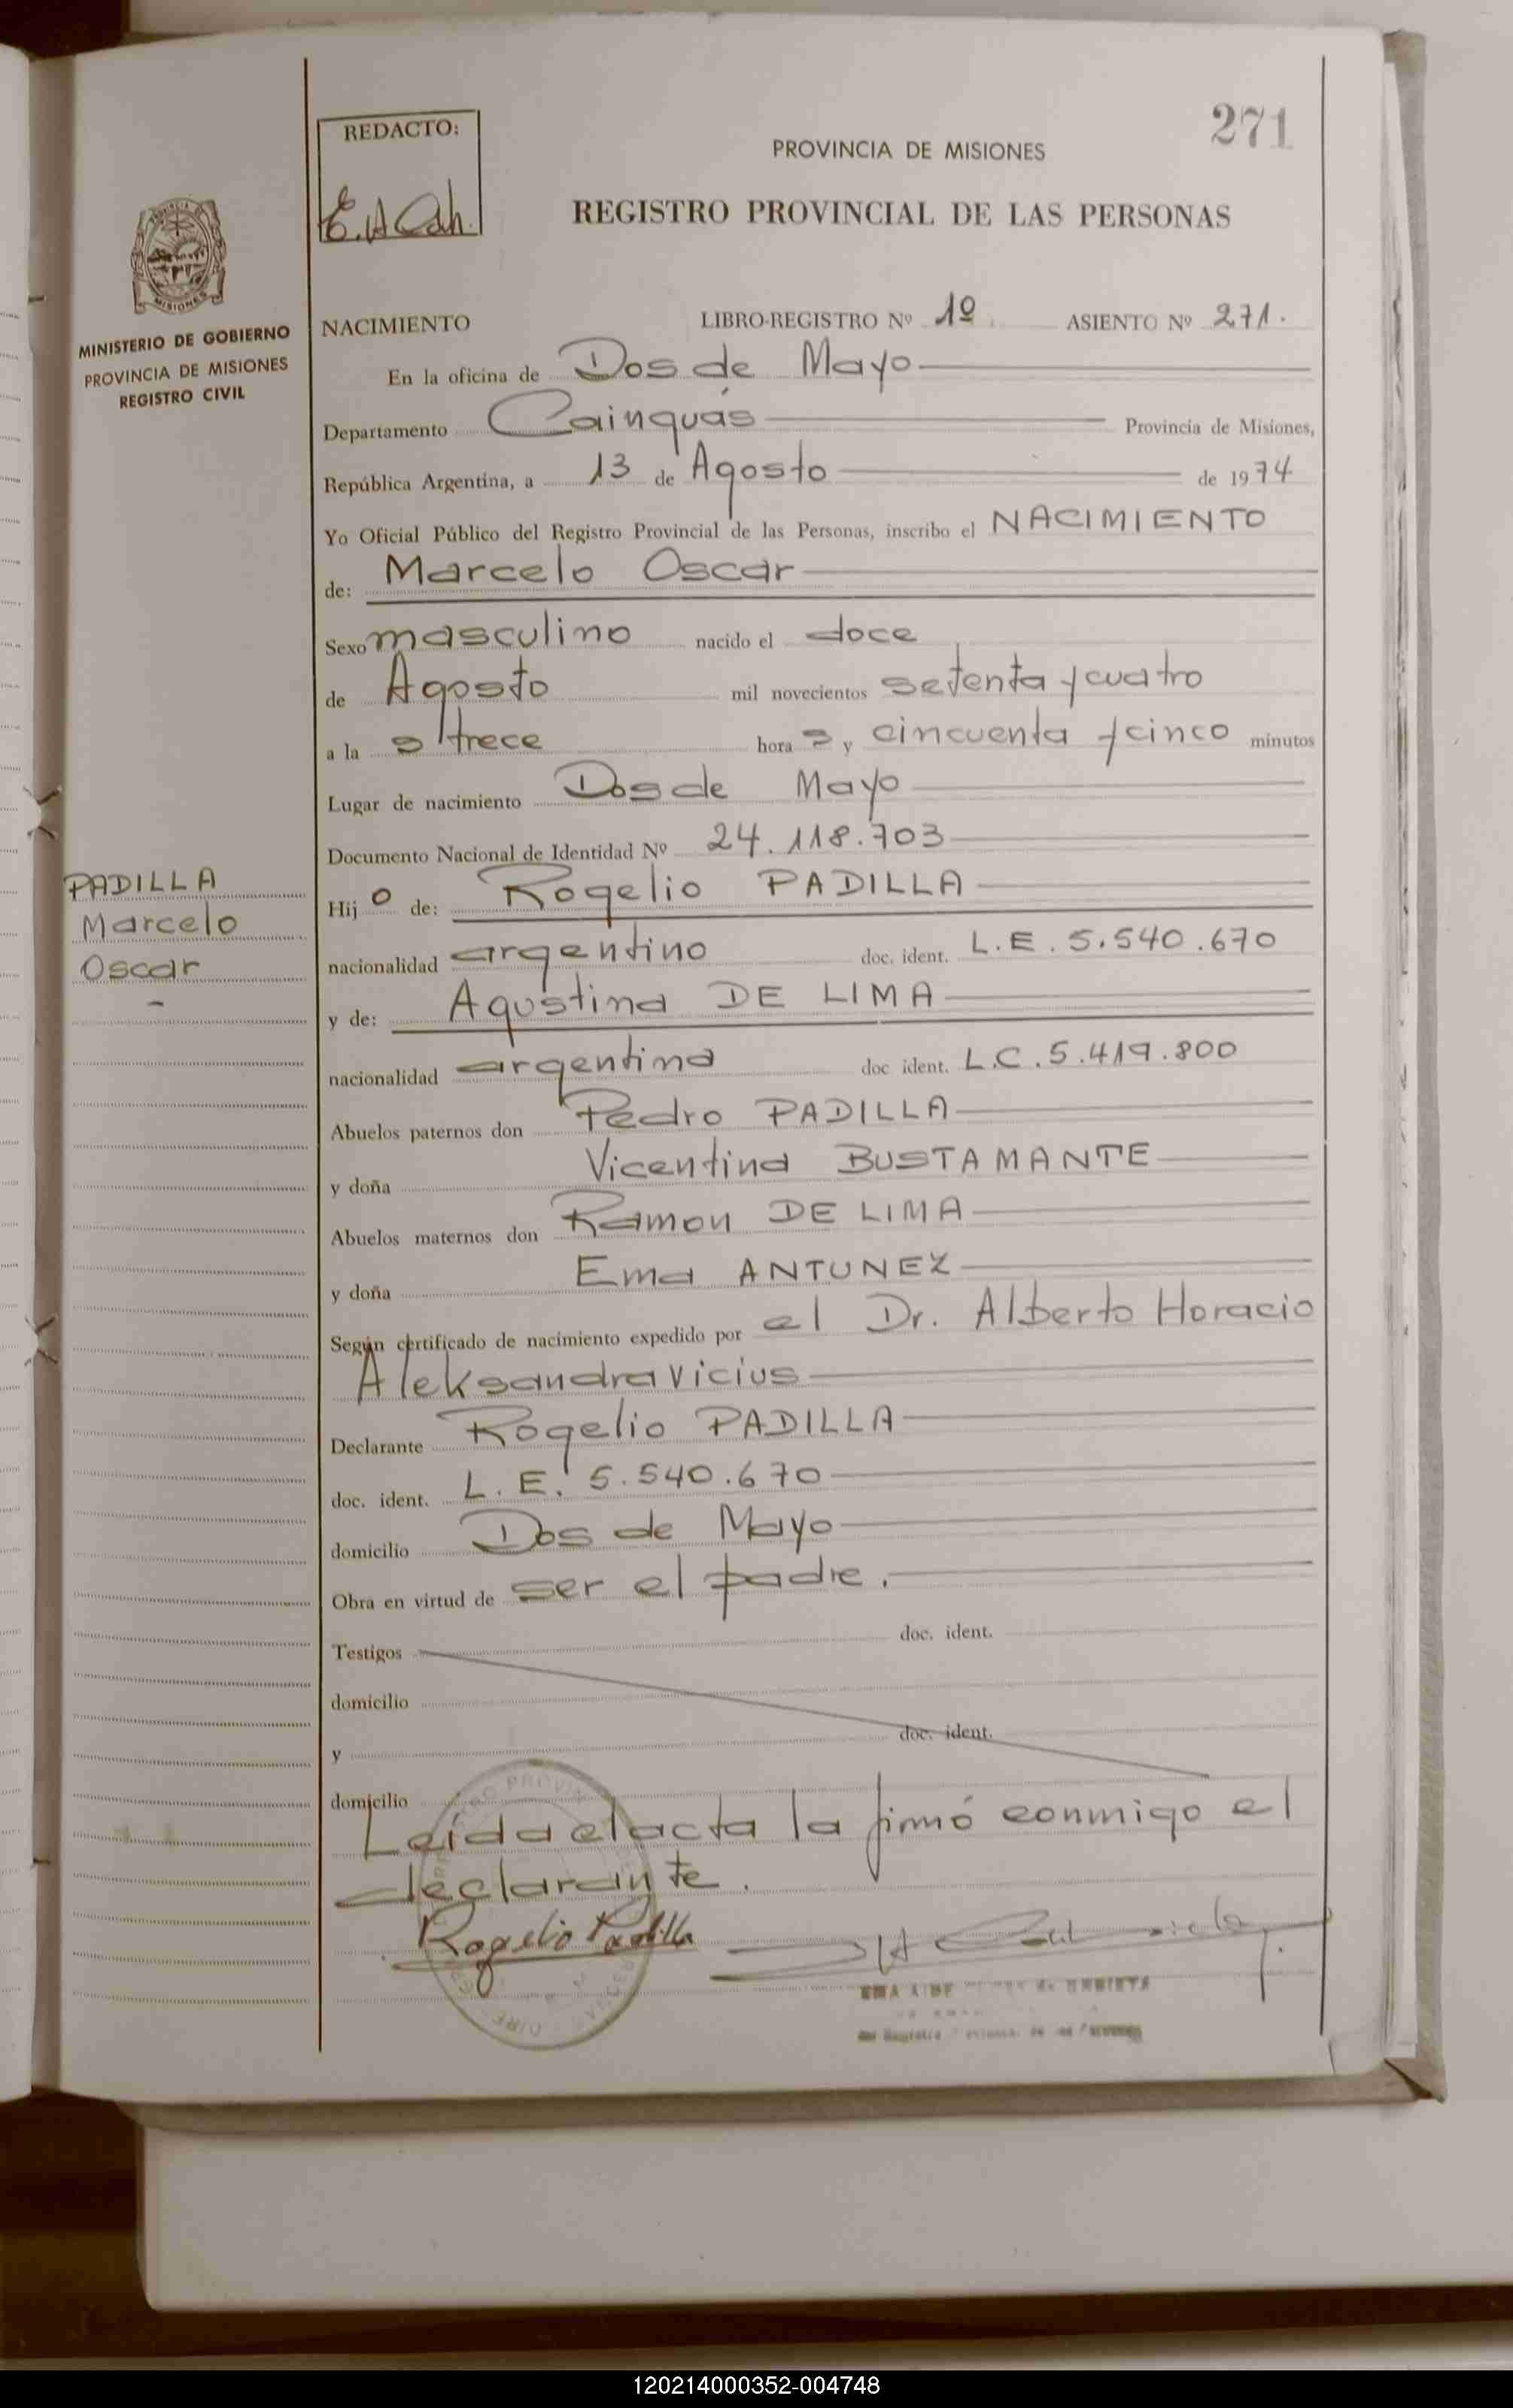 271
REDACTO:
E. A Cah.
PROVINCIA DE MISIONES
REGISTRO PROVINCIAL DE LAS PERSONAS
MISIONES
MINISTERIO DE GOBIERNO
PROVINCIA DE MISIONES
REGISTRO CIVIL
NACIMIENTO LIBRO-REGISTRO Nº 1º. ASIENTO Nº 271.
En la oficina de Dos de Mayo
Departamento Cainguás Provincia de Misiones,
República Argentina, a 13 de Agosto de 1974
Yo Oficial Público del Registro Provincial de las Personas, inscribo el NACIMIENTO
de: Marcelo Oscar
Sexo masculino nacido el doce
de Agosto mil novecientos setenta y cuatro
a la s trece hora s y cincuenta y cinco minutos
Lugar de nacimiento Dos de Mayo
Documento Nacional de Identidad Nº 24.118.703
PADILLA
Marcelo
Oscar
-
Hij o de: Rogelio PADILLA
nacionalidad argentino doc. ident. L.E. 5.540.670
y de: Agustina DE LIMA
nacionalidad argentina doc ident. L.C. 5.419.800
Abuelos paternos don Pedro PADILLA
y doña Vicentina BUSTAMANTE
Abuelos maternos don Ramon DE LIMA
y doña Ema ANTUNEZ
Según certificado de nacimiento expedido por el Dr. Alberto Horacio
Aleksandravicius
Declarante Rogelio PADILLA
doc. ident. L.E. 5.540.670
domicilio Dos de Mayo
Obra en virtud de ser el padre.
Testigos doc. ident.
domicilio
y doc. ident.
domicilio
Leída el acta la firmó conmigo el
declarante.
Rogelio Padilla
120214000352-004748